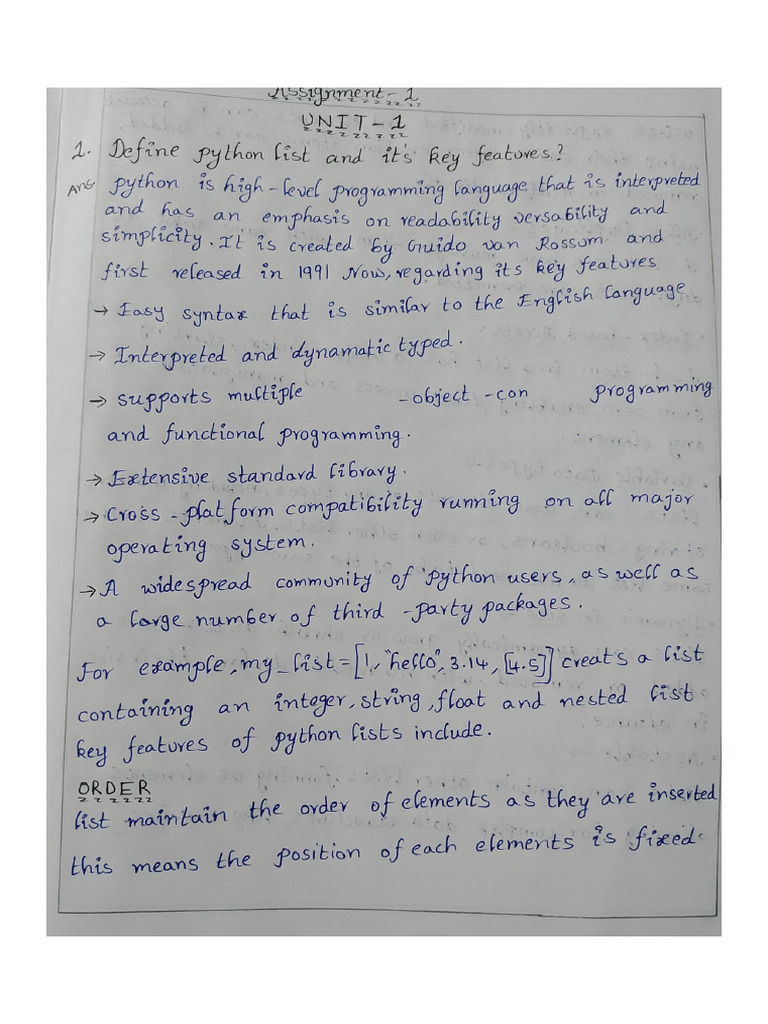 Assignment - 1
UNIT - 1
1. Define python list and it's key features?
Ans. python is high-level programming language that is interpreted
and has an emphasis on readability versability and
simplicity. It is created by Guido van Rossum and
first released in 1991 Now, regarding its key features
→ Easy syntax that is similar to the English language
→ Interpreted and dynamatic typed.
→ supports multiple -object -con programming
and functional programming.
→ Extensive standard library.
→ Cross-platform compatibility running on all major
operating system.
→ A widespread community of python users, as well as
a large number of third -party packages.
For example, my_list=[1, "hello", 3.14, [4.5]] creats a list
containing an integer, string, float and nested list
key features of python lists include.
ORDER
list maintain the order of elements as they are inserted
this means the position of each elements is fixed.